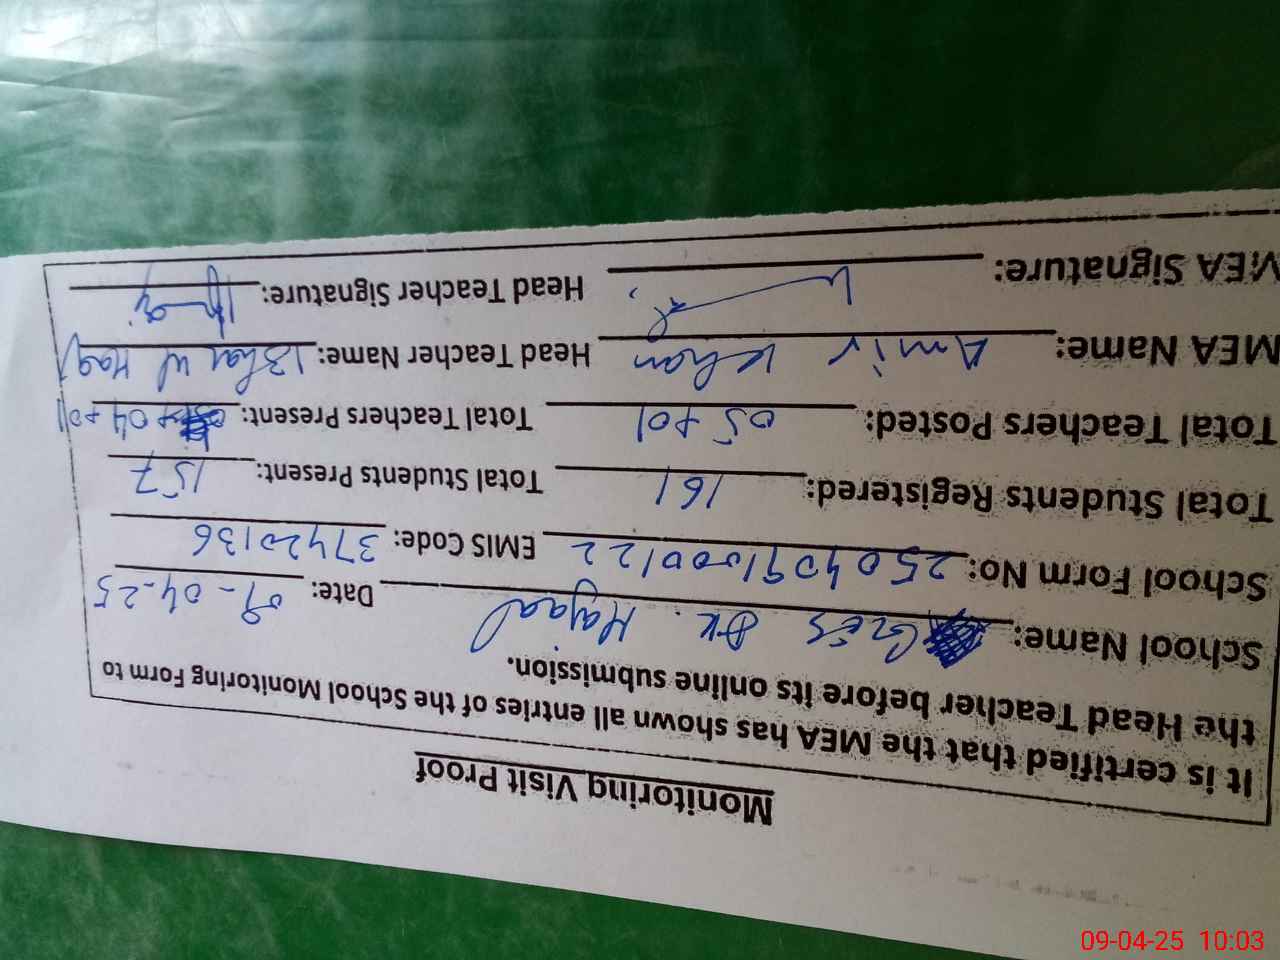 Monitoring Visit Proof
It is certified that the MEA has shown all entries of the School Monitoring Form to
the Head Teacher before its online submission.
School Name: GPS Dk. Date: 09-04-25
School Form No: EMIS Code: 37420136
Total Students Registered: 161 Total Students Present: 157
Total Teachers Posted: 05+01 Total Teachers Present: 04+01
MEA Name: Amir Khan Head Teacher Name: Haq
MEA Signature: Head Teacher Signature:
09-04-25 10:03